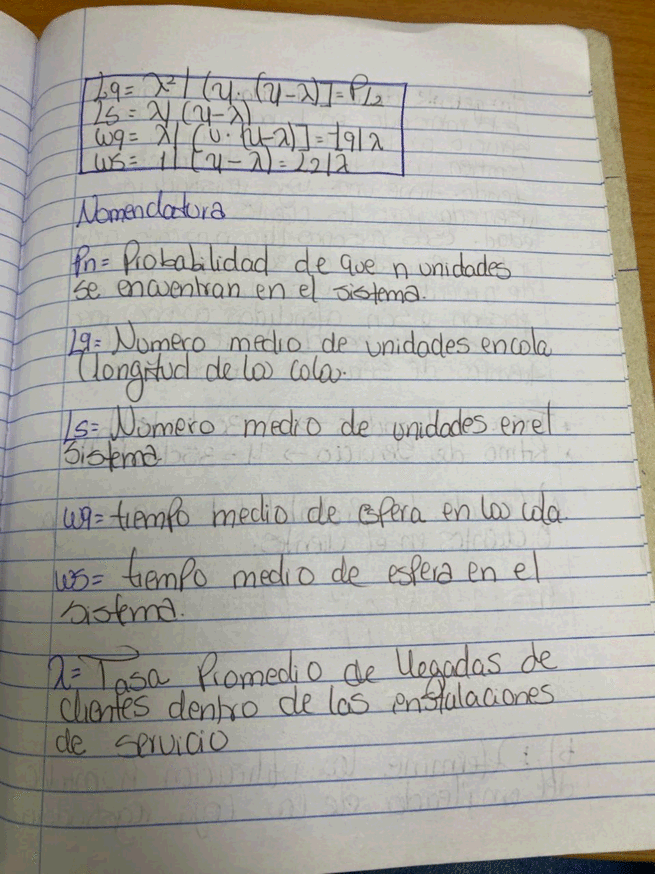 Lq = λ² / (μ · (μ - λ)] = PL2
Ls = λ / (μ - λ)
Wq = λ / (μ · (μ - λ)] = Lq/λ
Ws = 1 / (μ - λ) = L2/λ
Nomenclatura
Pn = Probabilidad de que n unidades
se encuentran en el sistema.
Lq = Número medio de unidades en cola
(longitud de la cola.
Ls = Número medio de unidades en el
Sistema
Wq = tiempo medio de espera en la cola.
Ws = tiempo medio de espera en el
sistema.
λ = Tasa Promedio de llegadas de
clientes dentro de las enstalaciones
de servicio